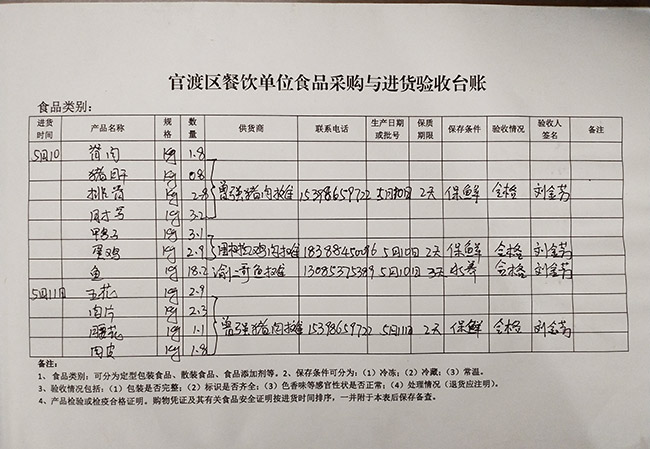 官渡区餐饮单位食品采购与进货验收台账
食品类别：
进货时间 产品名称 规格 数量 供货商 联系电话 生产日期或批号 保质期限 保存条件 验收情况 验收人签名 备注
5月10 猪肉 kg 1.8
猪肝 kg 0.8
排骨 kg 2.8 曾强猪肉摊 15398659722 5月10日 2天 保鲜 合格
kg 3.2
鸭子 kg 3.1
kg 2.9 鸡肉摊 5月10日 2天 保鲜 合格
鱼 kg 18.2 鱼摊 13085375389 5月10日 合格
5月11日 五花 kg 2.9
肉片 kg 2.3
腰花 kg 1.1 曾强猪肉摊 15398659722 5月11日 2天 保鲜 合格
肉皮 kg 1.8
备注：
1、食品类别：可分为定型包装食品、散装食品、食品添加剂等。2、保存条件可分为：（1）冷冻；（2）冷藏；（3）常温。
3、验收情况包括：（1）包装是否完整；（2）标识是否齐全；（3）色香味等感官性状是否正常；（4）处理情况（退货应注明）。
4、产品检验或检疫合格证明。购物凭证及其有关食品安全证明按进货时间排序，一并附于本表后保存备查。